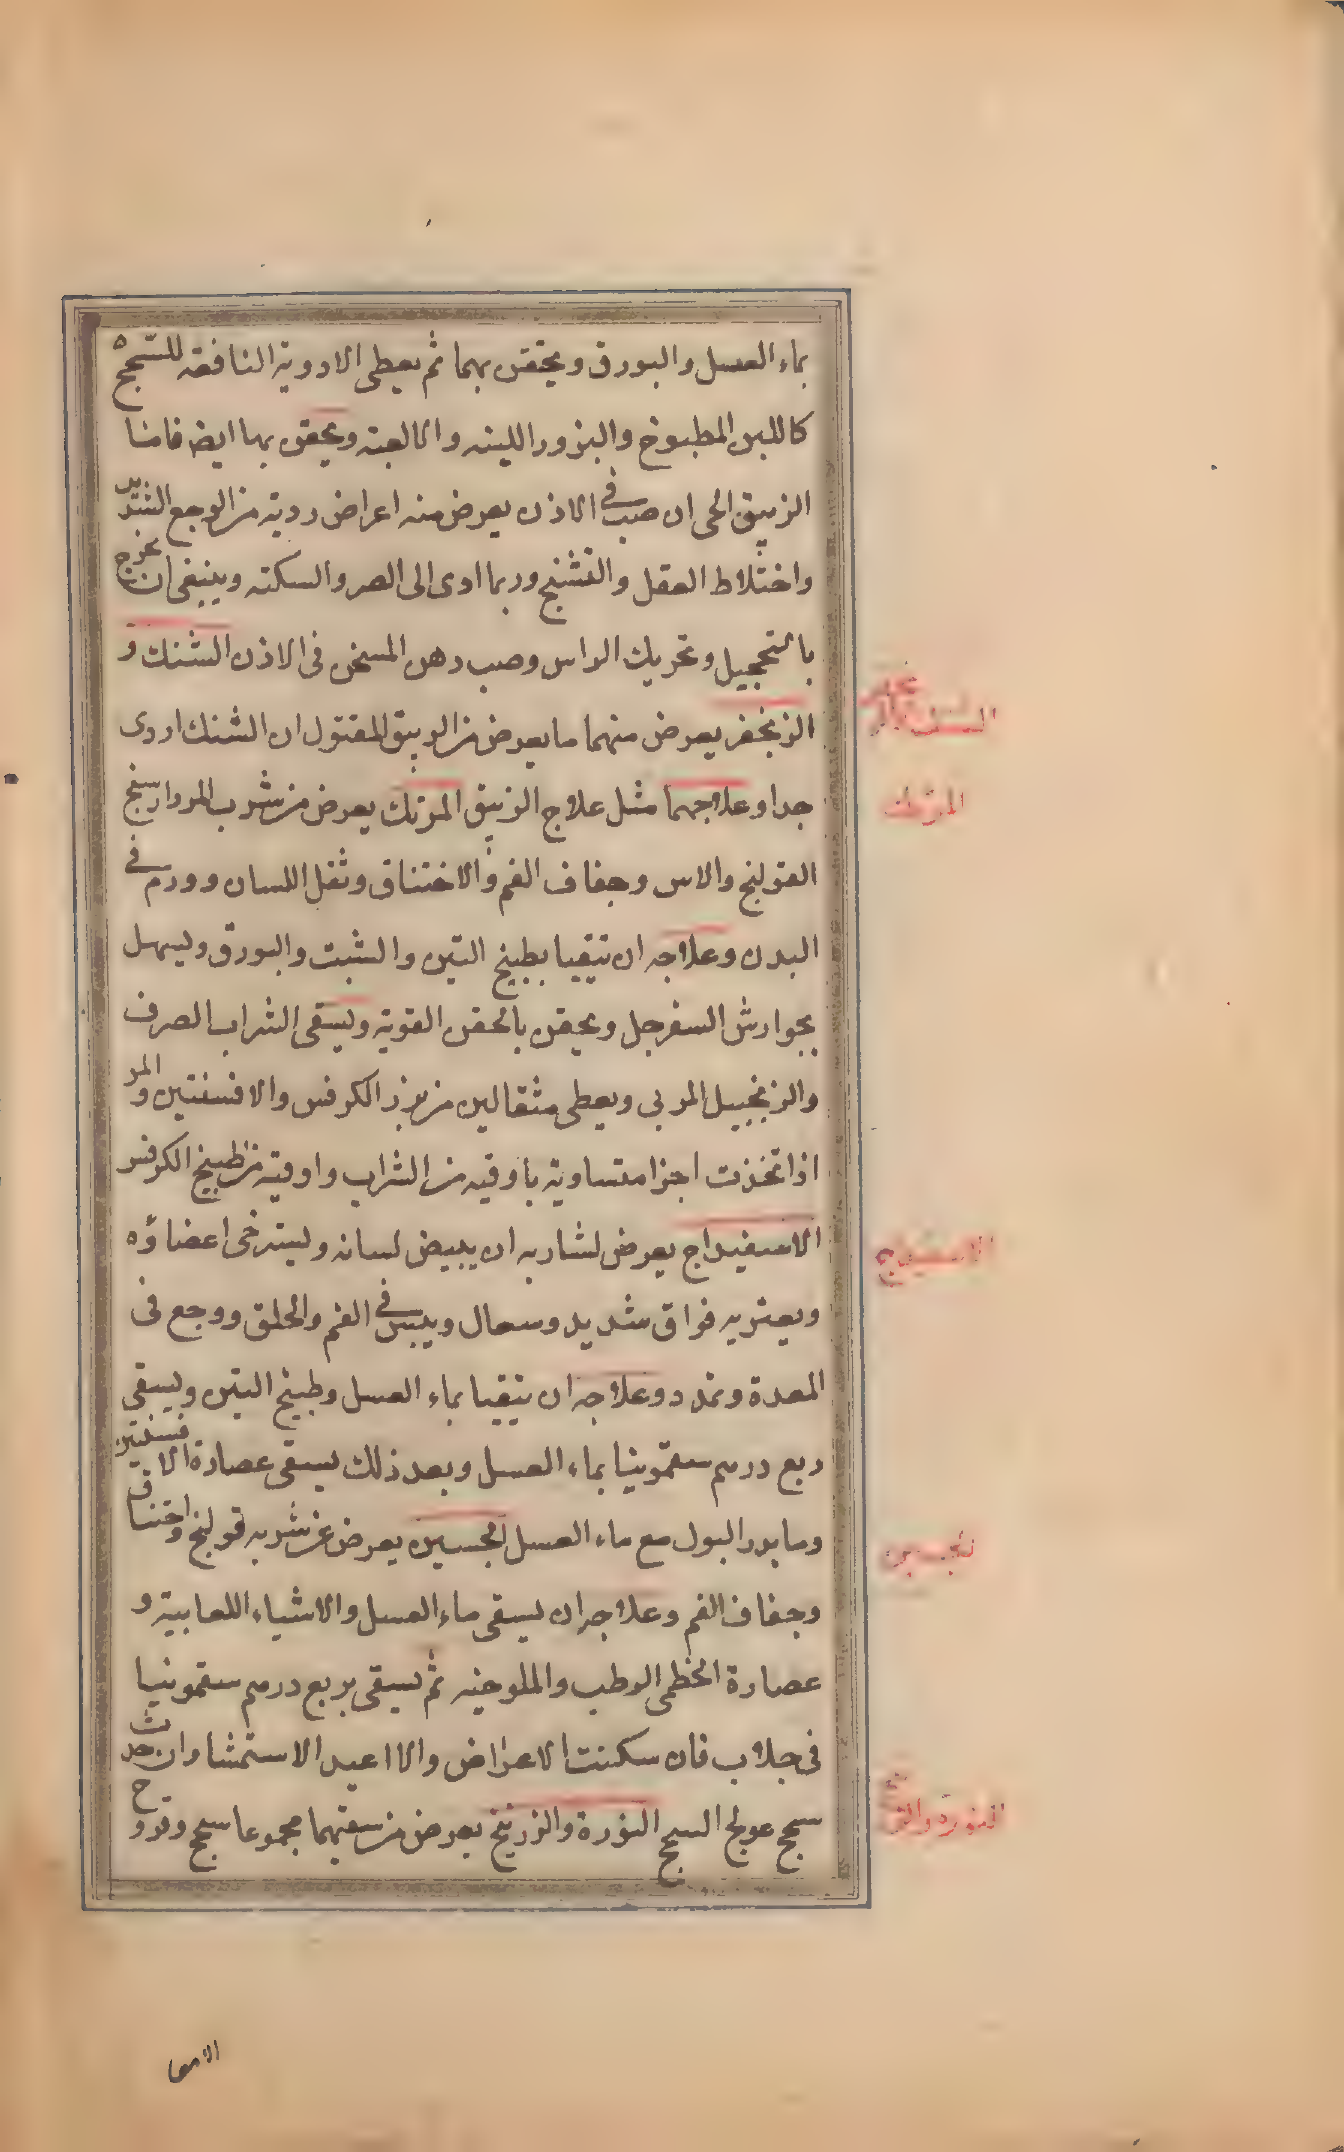 بماء العسل والبورق ويحقن بهما ثم يعطى الادوية النافعة للسحج
كاللبن المطبوخ والبزور اللينه والالعبته ويحقن بها ايضه فامنا
الزيبق الحى ان صب فى الاذن يعرض منه اعراض رديته من الوجع الشديد
واختلاط العقل والتشنج وربما ادى الى الصر والسكته وينبغى ان يخرج
بالتحجيل وتحريك الراس وصب دهن المسخن فى الاذن الشنك و
الزنجفر يعرض منهما ما يعرض من الزيبق المقتول ان الشنك اردى
جدا وعلاجهما مثل علاج الزيبق المرتك يعرض من شرب المردارسنج
القولنج والاس وجفاف الفم والاختناق وثقل اللسان وورم فى
البدن وعلاجه ان يتقيا بطبيخ التين والشبت والبورق ويسهل
بجوارش السفرجل ويحقن بالحقن القويه ويسقى الشراب الصرف
والزنجبيل المربى ويعطى مثقالين من بزر الكرفس والافسنتين والمر
اذا تخذت اجزا متساوية باوقيه من الشراب واوقيه من طبيخ الكرفس
الاسفيداج يعرض لشاربه ان يبيض لسانه ويسترخى اعضاؤه
ويعتريه فواق شديد وسعال ويبس فى الفم والحلق ووجع فى
المعدة وتمدد وعلاجه ان يتقيا بماء العسل وطبيخ التين ويسقى
ربع درهم سقمونيا بماء العسل وبعد ذلك يسقى عصارة الافسنتين
وما يدر البول مع ماء العسل الجبسين يعرض عن شربه قولنج واختناق
وجفاف الفم وعلاجه ان يسقى ماء العسل والاشياء اللعابية و
عصارة الخطمى الرطب والملوخيه ثم يسقى بربع درهم سقمونيا
فى جلاب فان سكنت الاعراض والا اعيد الاستمشا وان حدث
سحج عولج السحج النورة والزرنيخ يعرض من سقيهما مجموعا سحج وقروح
المرتك
الاسفيداج
الجبسين
الامعا